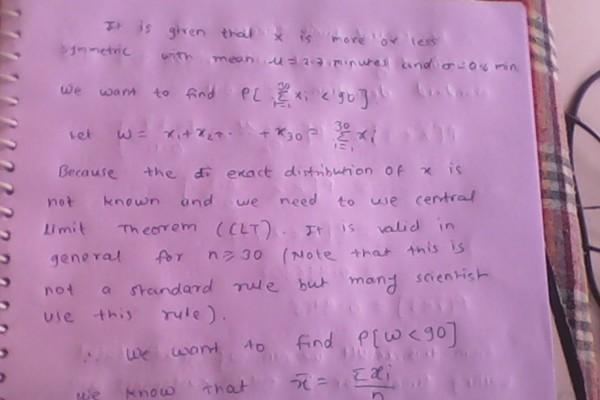 It is given that x is more or less
symmetric with mean μ = 2.7 minutes and σ = 0.6 min
We want to find P[ \sum_{i=1}^{30} x_i < 90 ]
Let W = x_1 + x_2 + . . + x_30 = \sum_{i=1}^{30} x_i
Because the exact distribution of x is
not known and we need to use central
limit Theorem (CLT). It is valid in
general for n ≥ 30 (Note that this is
not a standard rule but many scientist
use this rule).
∴ we want to find P[W < 90]
we know that x̄ = \frac{Σx_i}{n}